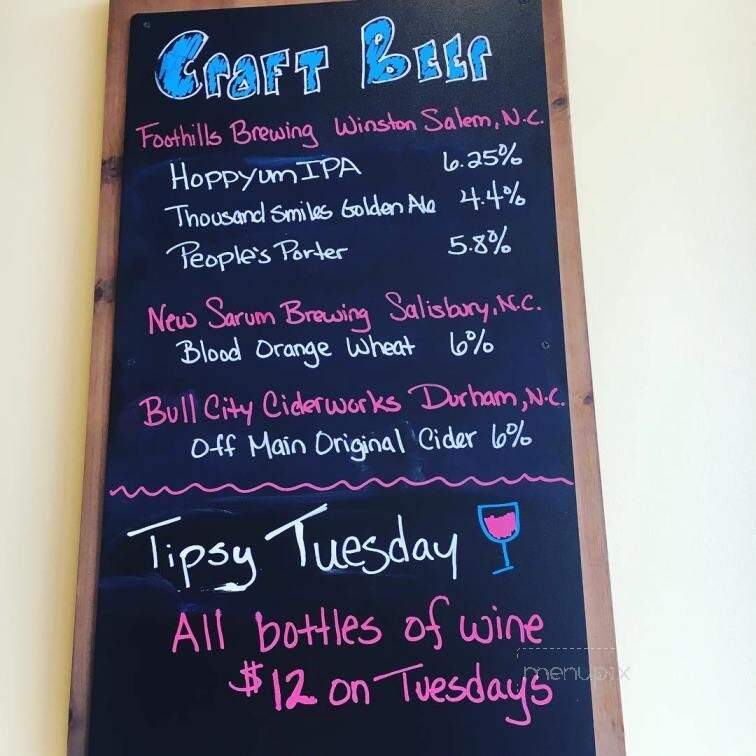 Craft Beer
Foothills Brewing Winston Salem, N.C.
Hoppyum IPA 6.25%
Thousand Smiles Golden Ale 4.4%
People's Porter 5.8%
New Sarum Brewing Salisbury, N.C.
Blood Orange Wheat 6%
Bull City Ciderworks Durham, N.C.
Off Main Original Cider 6%
Tipsy Tuesday
All bottles of wine
$12 on Tuesdays
menupix